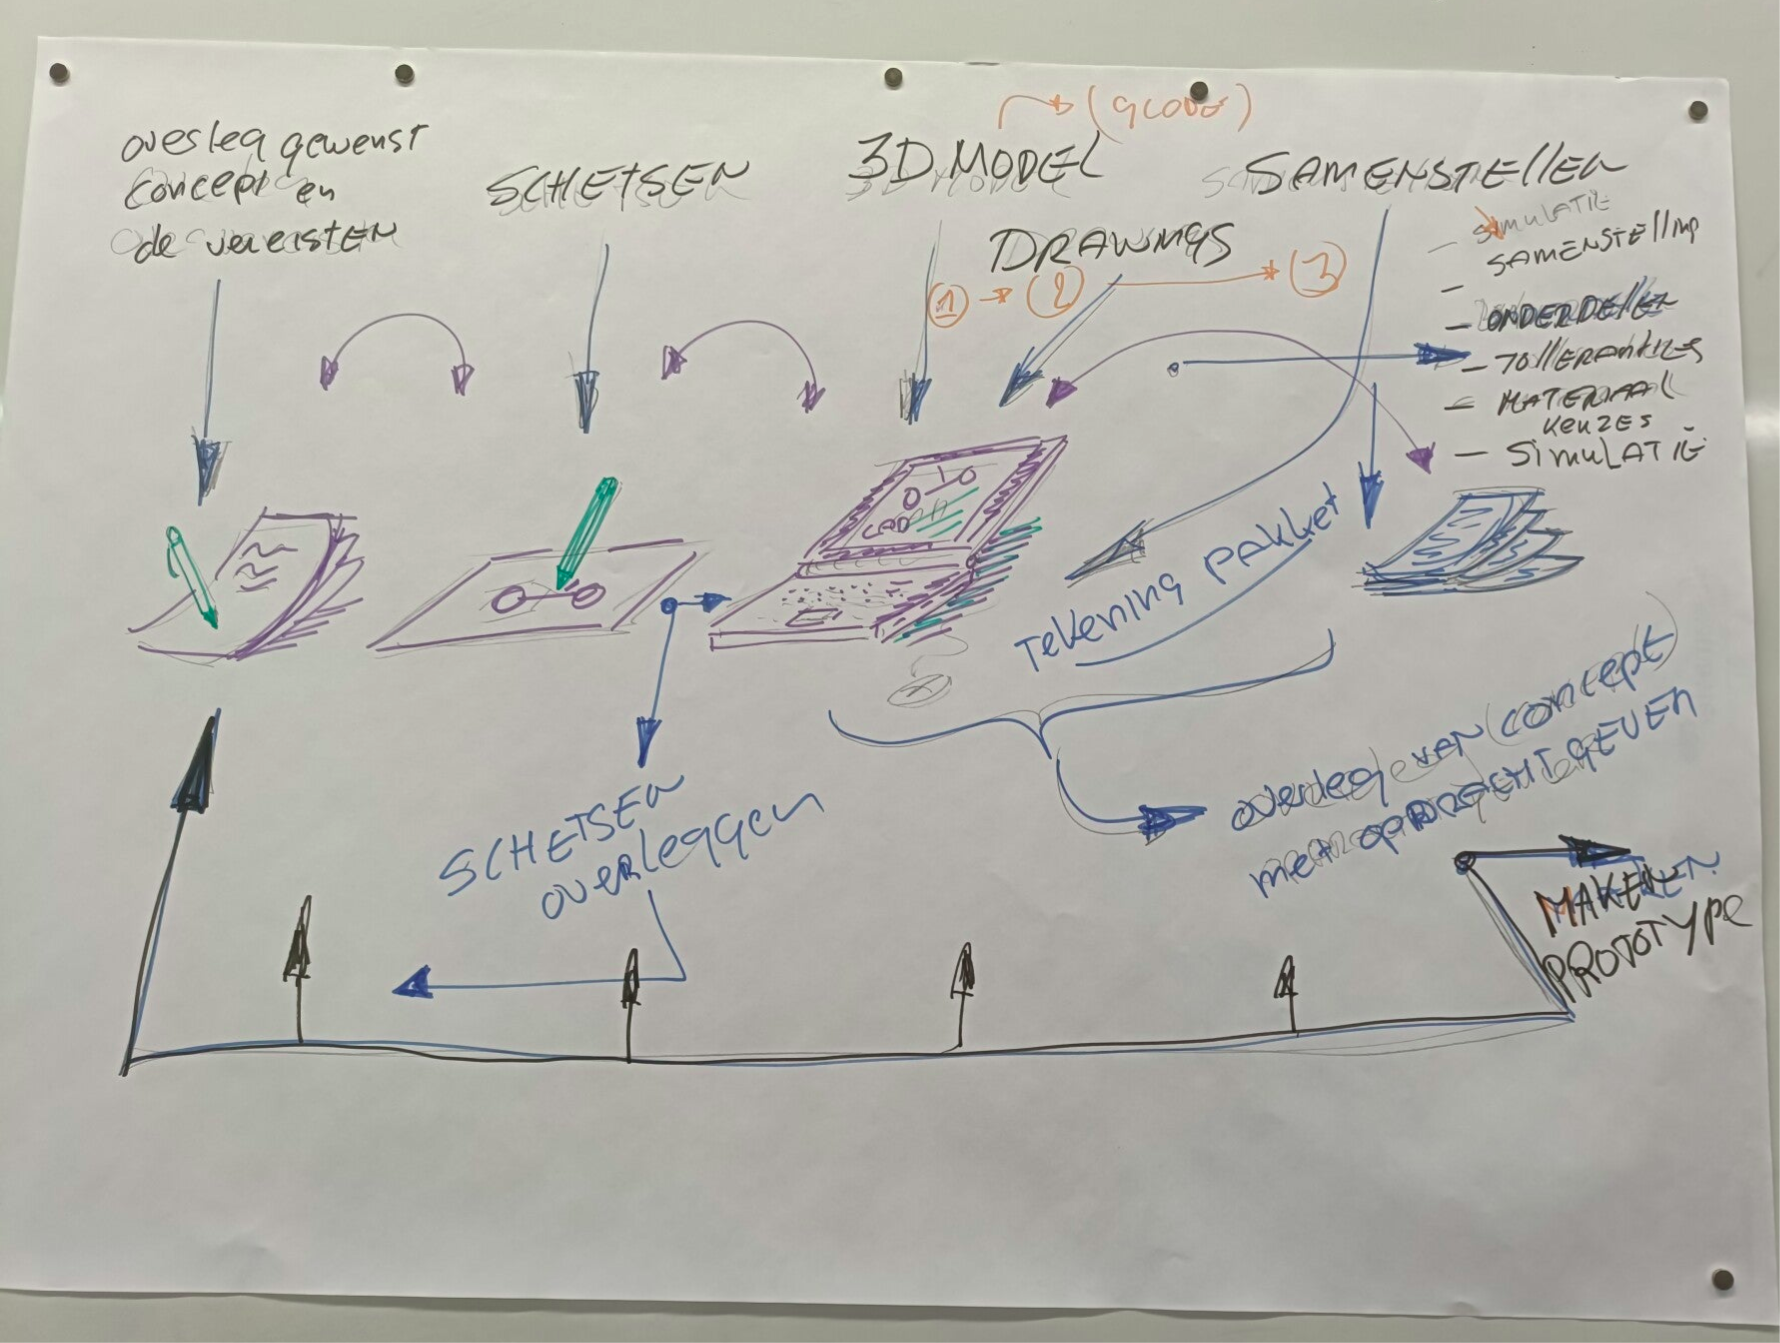 overleg gewenst
concept en
de vereisten
SCHETSEN
3D MODEL
(GCODE)
DRAWINGS
1
(2)
(3)
SAMENSTELLEN
SIMULATIE
SAMENSTELLING
- ONDERDELEN
- TOLLERANTIES
- MATERIAAL
KEUZES
- SIMULATIE
CAD
Tekening pakket
SCHETSEN
overleggen
overleg van concept
met opdrachtgever
MAKEN
PROTOTYPE